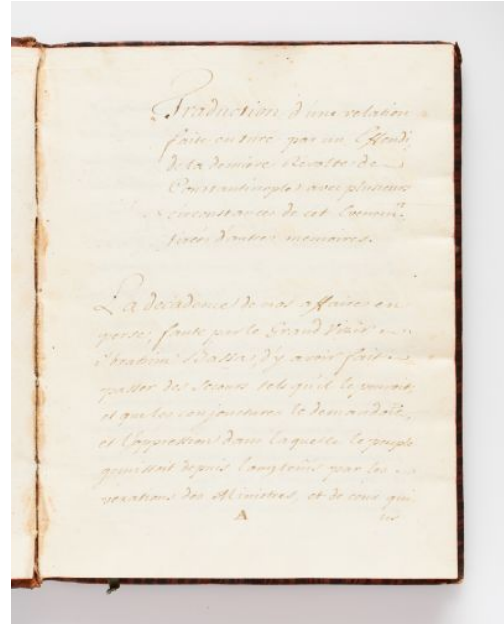 Traduction d'une relation
faite en turc par un Effendi,
de la derniere Revolte de
Constantinople, avec plusieurs
circonstances de cet Evenem.t
tirées d'autres memoires.
La decadence de nos affaires en
perse, faute par le Grand Visir
Ibrahim Bassa, d'y avoir fait
passer des Secours tels qu'il le pouvoit,
et que les conjonctures le demandoit,
et l'oppression dans laquelle le peuple
gemissoit depuis longtems par les
vexations des Ministres, et de ceux qui
A